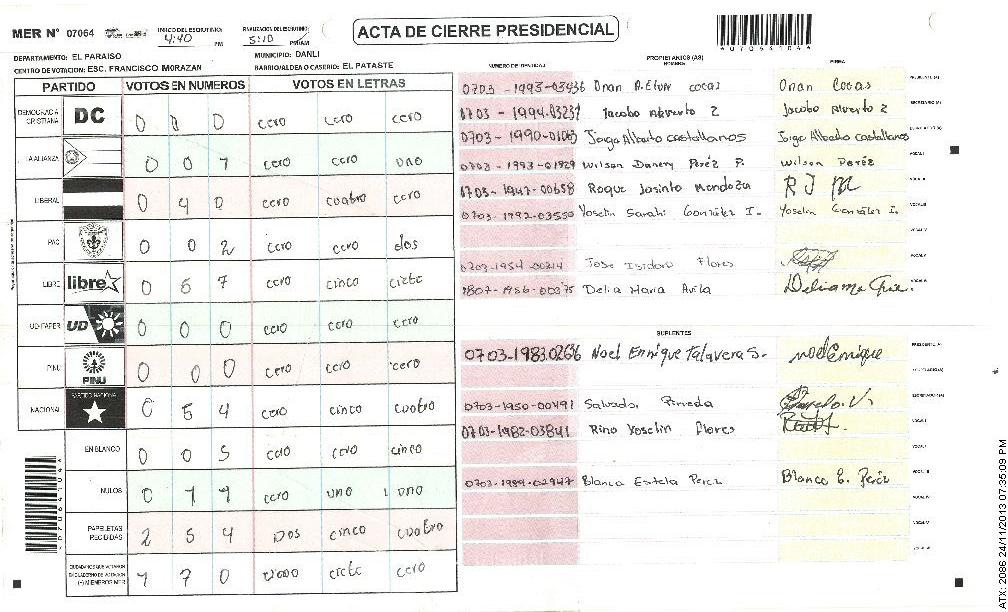 MER N° 07064
INICIO DEL ESCRUTINIO: 4:40 PM
FINALIZACION DEL ESCRUTINIO: 5:10 PM/AM
ACTA DE CIERRE PRESIDENCIAL
DEPARTAMENTO: EL PARAISO
MUNICIPIO: DANLI
CENTRO DE VOTACION: ESC. FRANCISCO MORAZAN
BARRIO/ALDEA O CASERIO: EL PATASTE
PARTIDO VOTOS EN NUMEROS VOTOS EN LETRAS
DEMOCRACIA CRISTIANA DC 0 0 0 cero cero cero
LA ALIANZA 0 0 1 cero cero uno
LIBERAL 0 4 0 cero cuatro cero
PAC 0 0 2 cero cero dos
LIBRE libre 0 5 7 cero cinco ciete
UD-FAPER UD 0 0 0 cero cero cero
PINU PINU 0 0 0 cero cero cero
NACIONAL PARTIDO NACIONAL 0 5 4 cero cinco cuatro
EN BLANCO 0 0 5 cero cero cinco
NULOS 0 1 1 cero uno uno
PAPELETAS RECIBIDAS 2 5 4 Dos cinco cuatro
CIUDADANOS QUE VOTARON EN CUADERNO DE VOTACION (+) MIEMBROS MER 1 7 0 uno ciete cero
NUMERO DE IDENTIDAD
PROPIETARIOS (AS)
NOMBRE
FIRMA
0703-1993-03436 Onan cocas Onan Cocas PRESIDENTE (A)
0703-1994-03237 Jacobo Alverto 2 Jacobo Alverto 2 SECRETARIO (A)
0703-1990-01063 Jorge Alberto castellanos Jorge Alberto castellanos
0703-1993-01929 Wilson Danery Peréz P. Wilson Peréz VOCAL I
0703-1947-00658 Roque Jasinto Mendoza R J M VOCAL II
0703-1992-03550 Yoselin Sarahi González I. Yoselin González I. VOCAL III
VOCAL IV
0703-1954-00214 Jose Isidoro Flores VOCAL V
1807-1956-00375 Delia Maria Avila VOCAL VI
SUPLENTES
0703-1983-02636 Noel Enrique Talavera S. noel Enrique PRESIDENTE (A)
SECRETARIO (A)
0703-1950-00491 Salvador Pineda
0703-1982-03841 Rina Yoselin Flores VOCAL I
VOCAL II
0703-1989-02947 Blanca Estela Perez Blanca E. Peréz VOCAL III
VOCAL IV
VOCAL V
VOCAL VI
ATX: 2086 24/11/2013 07:35:09 PM